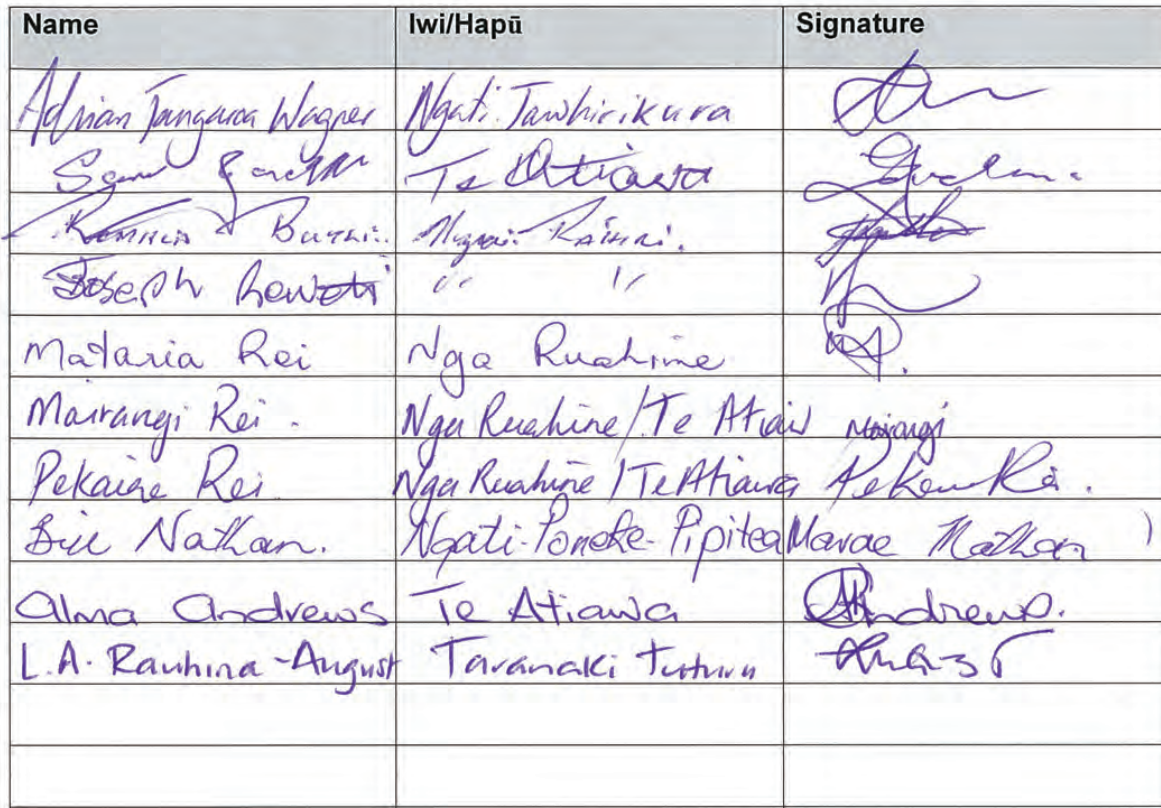 Name Iwi/Hapū Signature
Adrian Tangaroa Wagner Ngati Tawhirikura
Te Atiawa
Joseph " "
Mataria Rei Nga Ruahine
Mairangi Rei. Nga Ruahine/Te Atiaw Mairangi
Pekaire Rei Nga Ruahine/Te Atiawa
Bill Nathan. Ngati-Poneke-Pipitea Marae Nathan
Alma Andrews Te Atiawa Andrews.
L.A. Rauhina-August Taranaki Tuturu